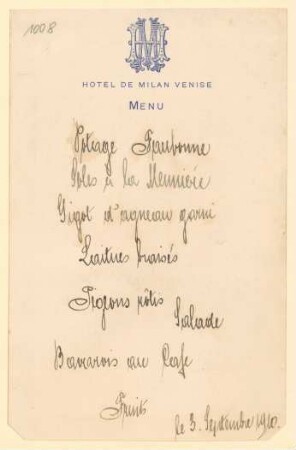 1008
HM
HOTEL DE MILAN VENISE
MENU
Potage Faubonne
Soles à la Meunière
Gigot d'agneau garni
Laitues braisés
Pigeons rôtis
Salade
Bavarois au Cafe
Fruits
le 3. Septembre 1910.